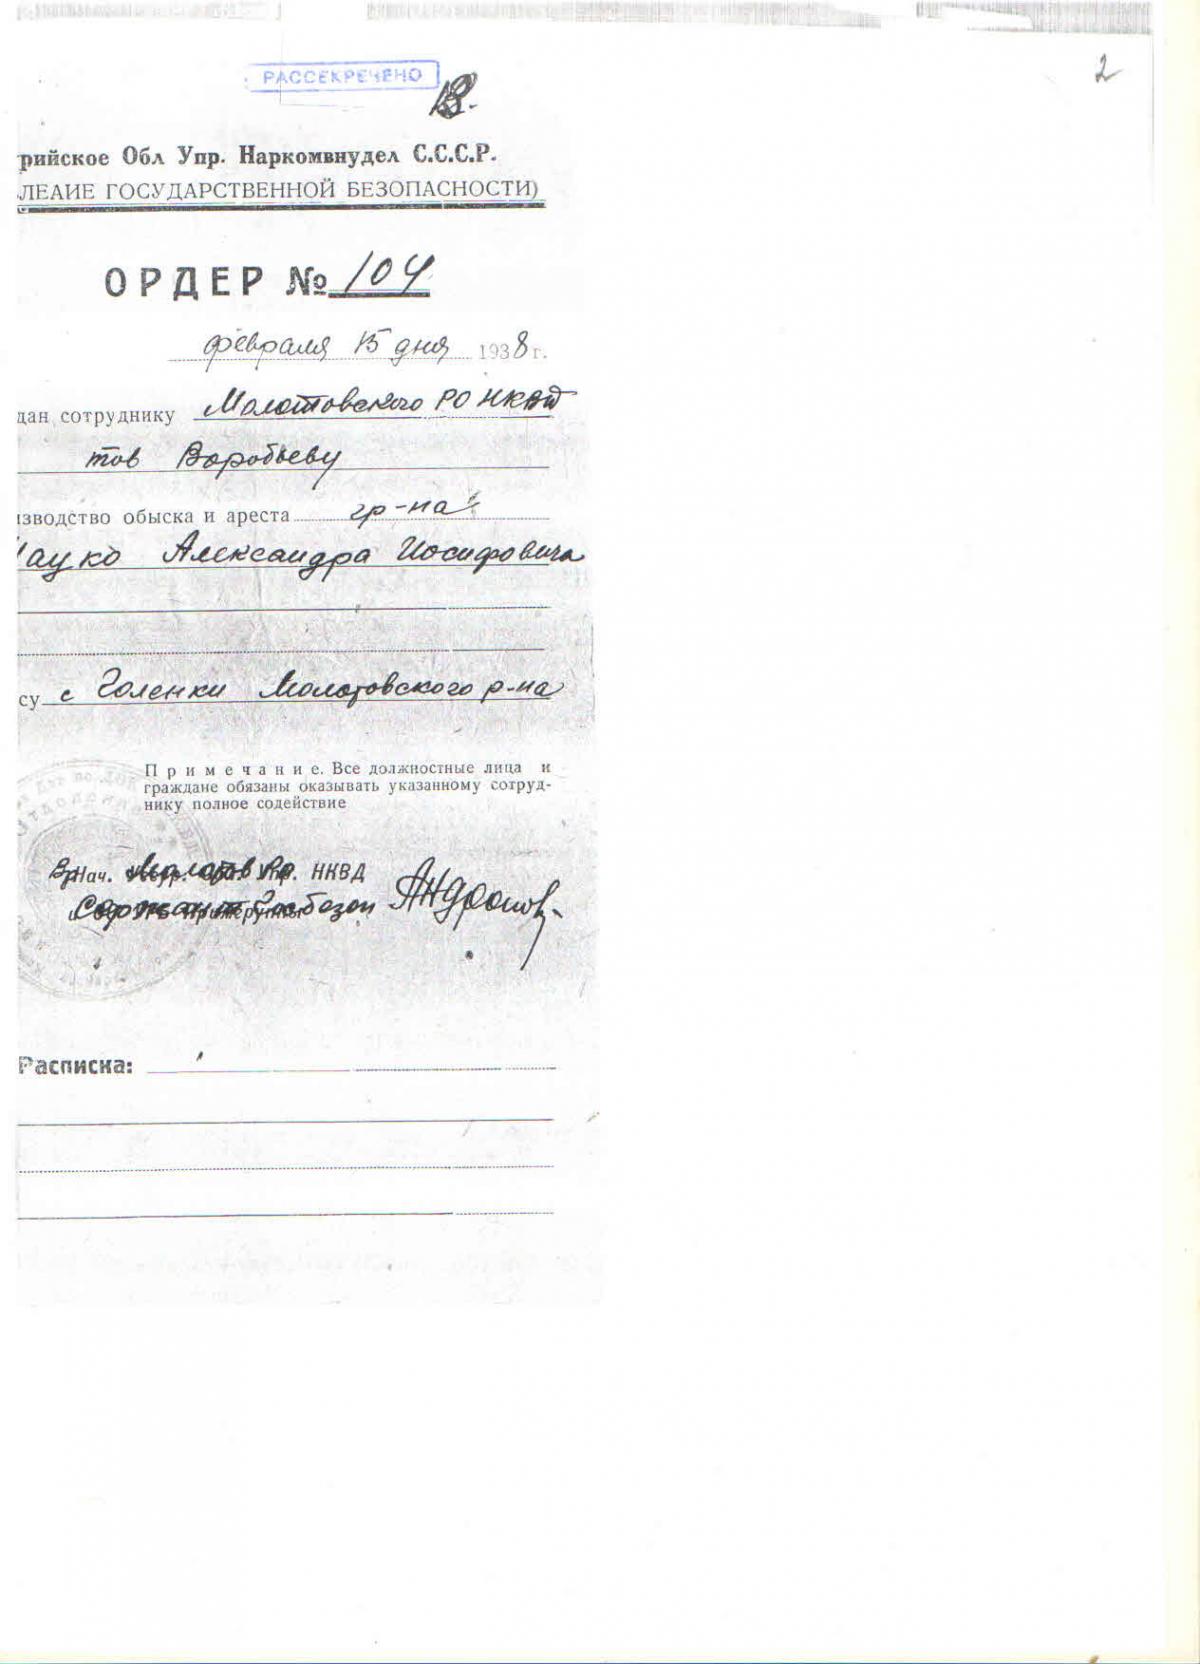 2
РАССЕКРЕЧЕНО
рийское Обл Упр. Наркомвнудел С.С.С.Р.
ЛЕАИЕ ГОСУДАРСТВЕННОЙ БЕЗОПАСНОСТИ)
ОРДЕР № 104
февраля 15 дня 1938 г.
дан сотруднику Молотовского РО НКВД
тов Воробьеву
изводство обыска и ареста гр-на
Науко Александра Иосифовича
су с Голенки Молотовского р-на
Примечание. Все должностные лица и
граждане обязаны оказывать указанному сотруд-
нику полное содействие
Вр Нач. Молотов Ро НКВД
Сержант Госбезоп Андронов
Расписка: